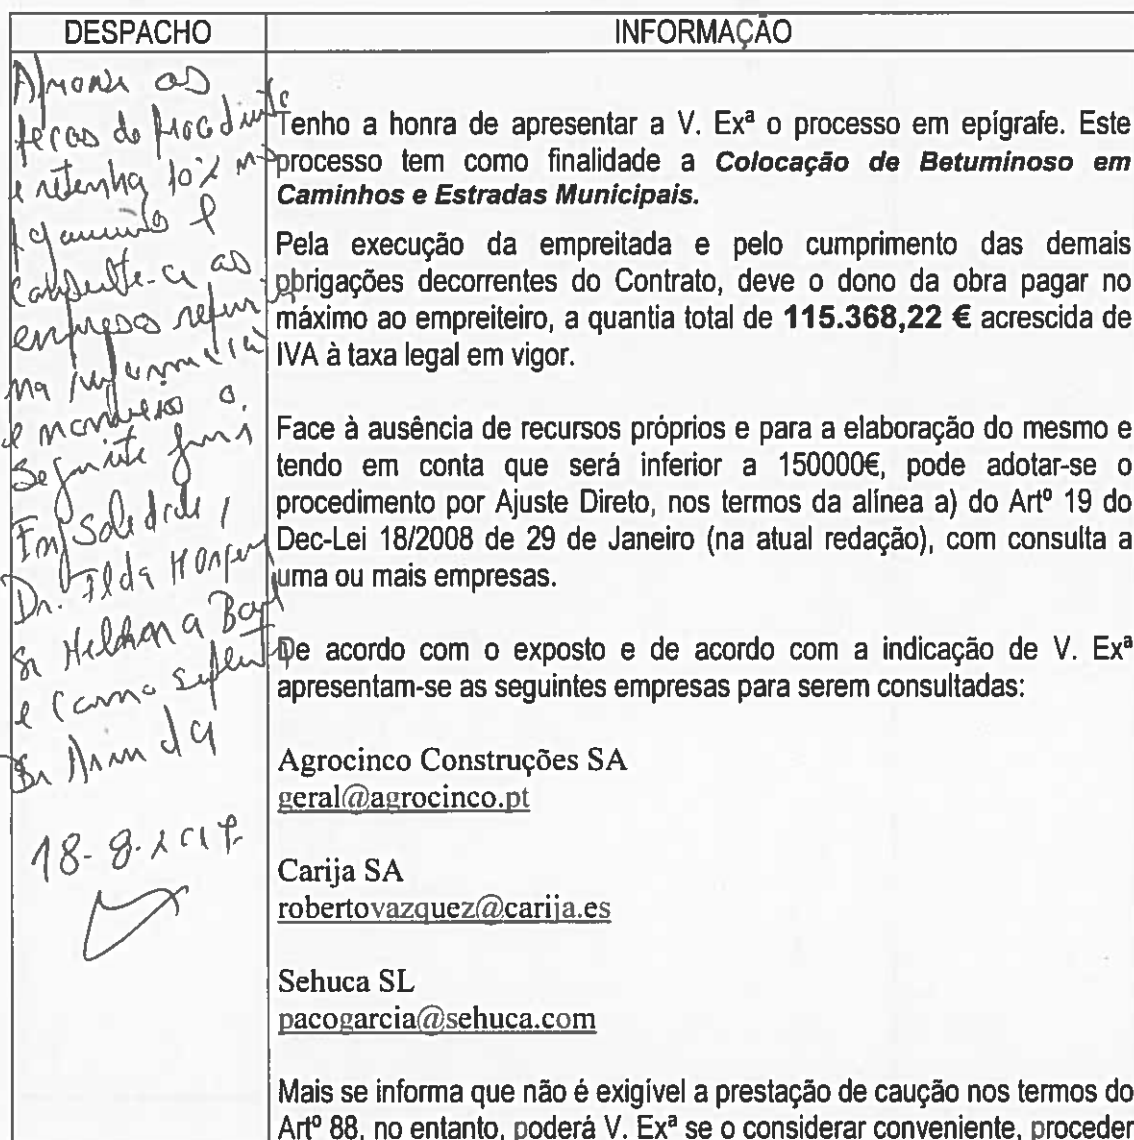 DESPACHO
INFORMAÇÃO
as
e retenha 10%
e
as
na
e
Dr. Ilda
e como
18-8-2017
Tenho a honra de apresentar a V. Exª o processo em epígrafe. Este
processo tem como finalidade a Colocação de Betuminoso em
Caminhos e Estradas Municipais.
Pela execução da empreitada e pelo cumprimento das demais
obrigações decorrentes do Contrato, deve o dono da obra pagar no
máximo ao empreiteiro, a quantia total de 115.368,22 € acrescida de
IVA à taxa legal em vigor.
Face à ausência de recursos próprios e para a elaboração do mesmo e
tendo em conta que será inferior a 150000€, pode adotar-se o
procedimento por Ajuste Direto, nos termos da alínea a) do Artº 19 do
Dec-Lei 18/2008 de 29 de Janeiro (na atual redação), com consulta a
uma ou mais empresas.
De acordo com o exposto e de acordo com a indicação de V. Exª
apresentam-se as seguintes empresas para serem consultadas:
Agrocinco Construções SA
geral@agrocinco.pt
Carija SA
robertovazquez@carija.es
Sehuca SL
pacogarcia@sehuca.com
Mais se informa que não é exigível a prestação de caução nos termos do
Artº 88, no entanto, poderá V. Exª se o considerar conveniente, proceder